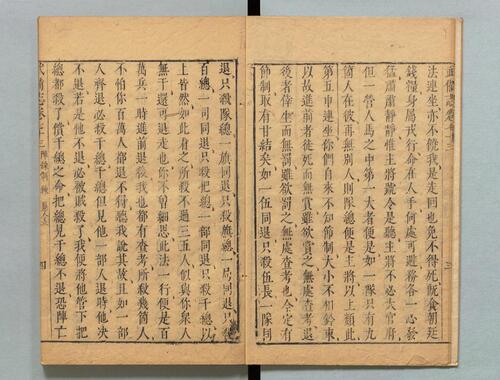 武備志卷七十三
法連坐亦不饒我是走回也免不得死既食朝廷
錢糧身屬戎行命在人手何處可避務各一心發
猛肅肅靜靜惟主將號令是聽主將不必大官府
但一營人馬之中第一大者便是如一隊只有九
箇人在彼再無別人則隊總便是主將以上類此
第五申連坐你們自來不知節制大小不相鈐束
以故進前者徒死而無賞雖欲賞之無處查考退
後者倖生而無罰雖欲罰之無處查考也今定有
節制取有甘結矣如一伍同退只殺伍長一隊同
退只殺隊總一旗同退只殺旗總一局同退只殺
百總一司同退只殺把總一部同退只殺千總以
上皆然如此看之所殺不過三五人似與你衆人
無干還可退走你不曾細思此法一行便是百
萬兵一時進前退殺我也都有查考所殺幾箇人
不怕你百萬人都退不得聽我說其故且如一部
人齊退必殺千總千總但見他一部人退時他決
不退若是他不退必被賊殺了我便將他管下把
總都殺了償千總之命把總見千總不退恐陣亡